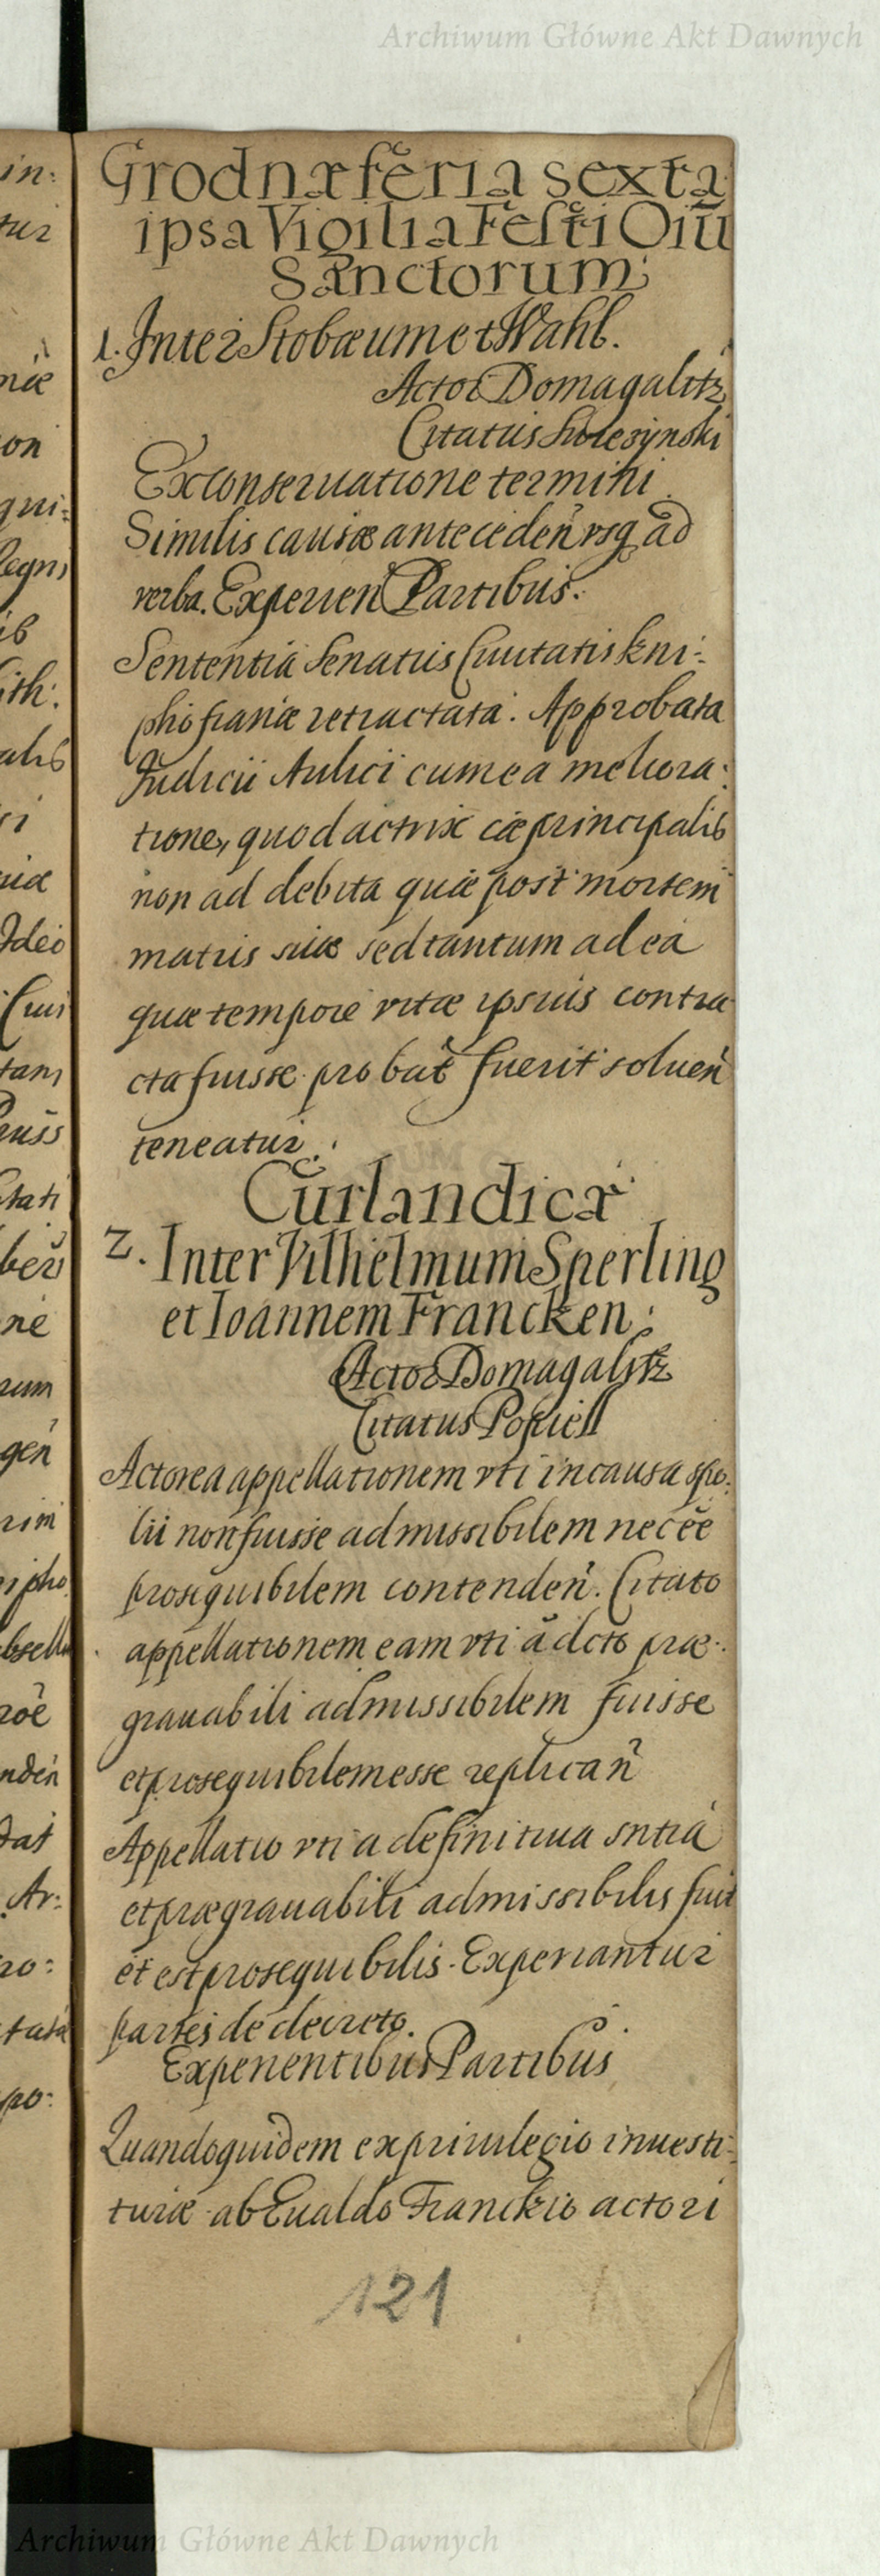 Archiwum Główne Akt Dawnych
in:
tur
on
qui:
Regni
ith:
alis
Ideo
tam
stati
ne
rum
gen̄
rimi
ipho
nden̄
dat
Ar:
ro:
tata
po:
Grodnæ feria sexta
ipsa Vigilia Festi Oiū
Sanctorum;
1. Inter Stobæum et Wahl.
Actor Domagalitz
Citatus Swieszynski
Ex conseruatione termini
Similis causæ anteceden̄ vsq ad
verba. Experien̄ Partibus.
Sententia Senatus Ciuitatis kni:
phofianæ retractata. Approbata
Judicii Aulici cum ea meliora:
tione, quod actrix cæ principalis
non ad debita quæ post mortem
matris suæ sed tantum ad ea
quæ tempore vitæ ipsius contra
cta fuisse probatē fuerit soluen̄
teneatur.
Curlandicæ
2. Inter Vilhelmum Sperling
et Ioannem Francken;
Actor Domagalitz
Citatus Popiell
Actorea appellationem vti in causa spo:
lii non fuisse admissibilem nec eē
prosequibilem contenden̄. Citato
appellationem eam vti ā dcto præ:
grauabili admissibilem fuisse
et prosequibilem esse replican̄
Appellatio vti a definitiua sntia
et prægrauabili admissibilis fuit
et est prosequibilis. Experiantur
partes de decreto.
Experientibus Partibus
Quandoquidem ex priuilegio inuesti:
turæ ab Eualdo Franckio actori
121
Archiwum Główne Akt Dawnych